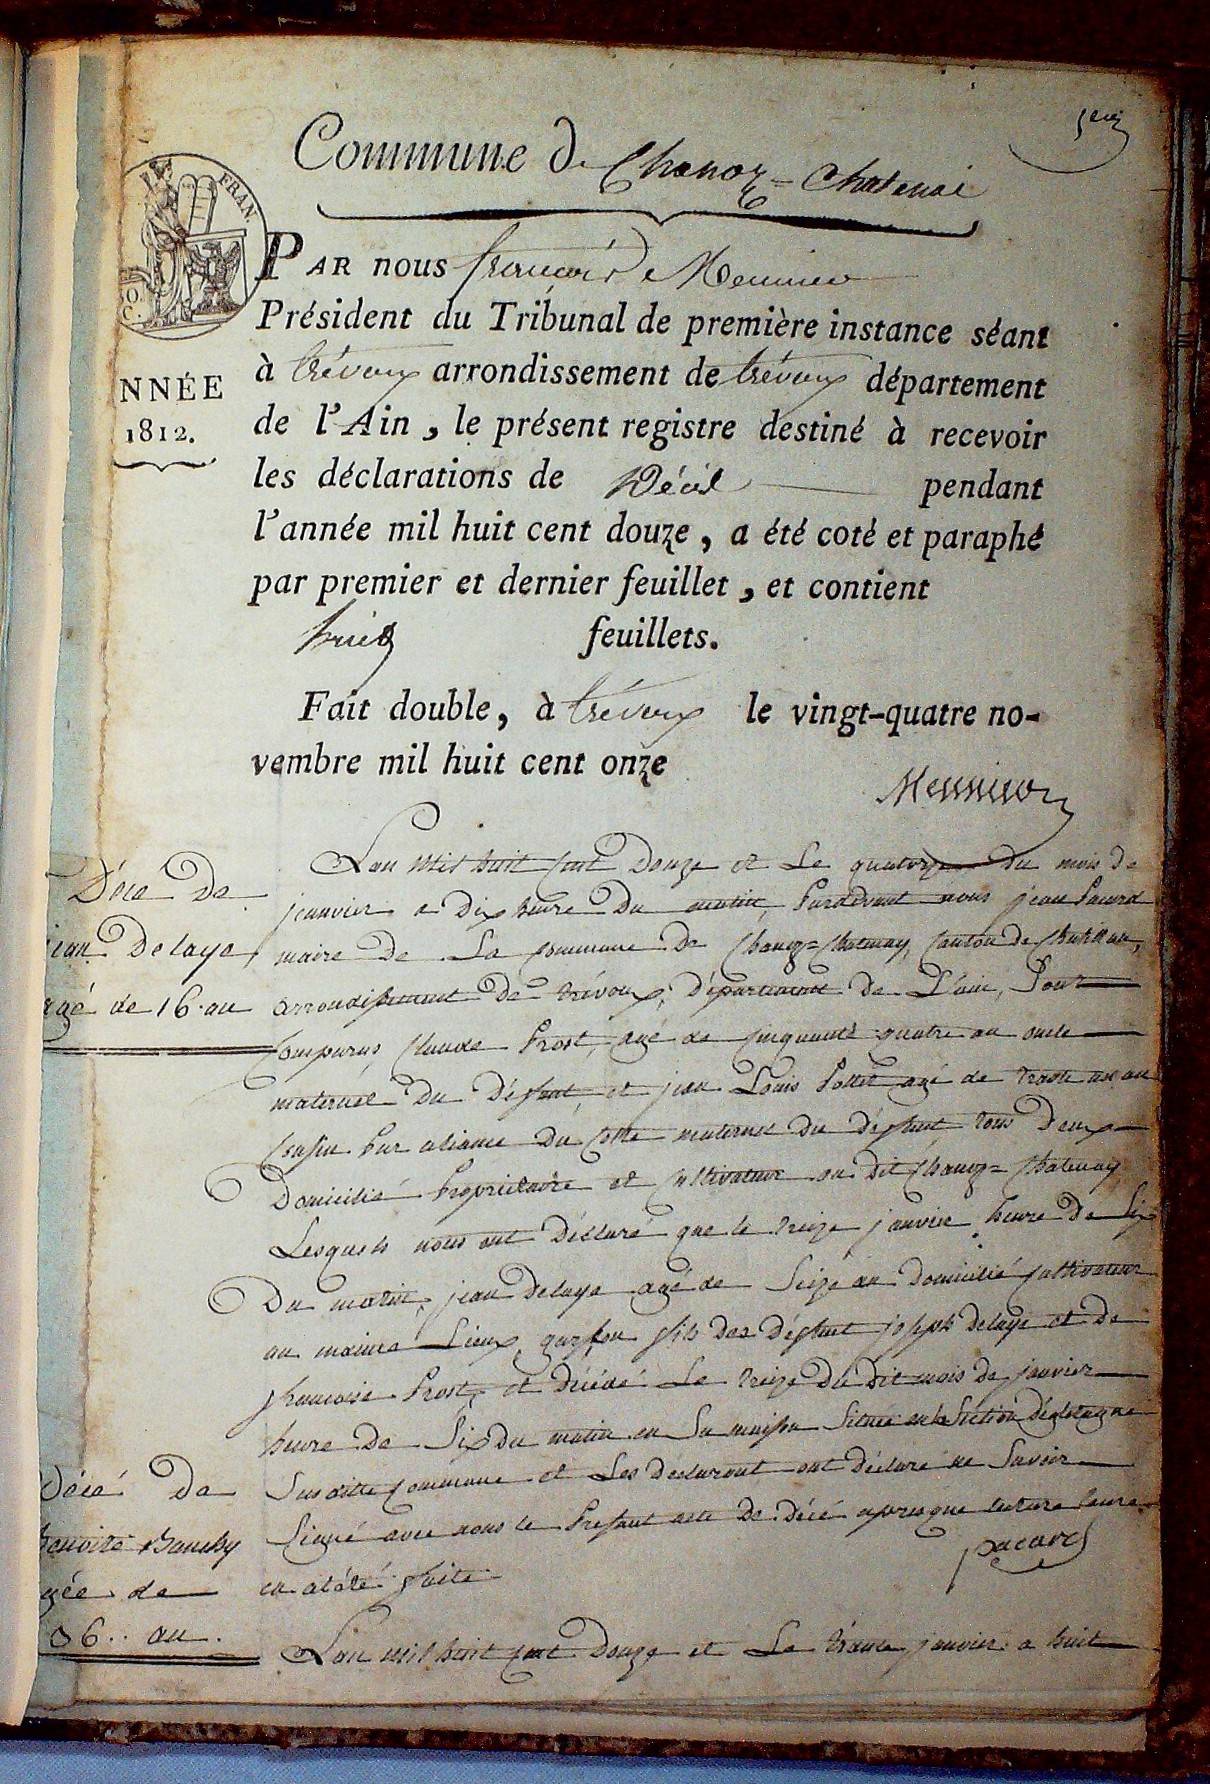 1er
Commune de Chanoz = Chatenai
FRAN.
PAR nous françois Meunier
Président du Tribunal de première instance séant
à trévoux arrondissement de trévoux département
NNÉE
1812.
de l'Ain, le présent registre destiné à recevoir
les déclarations de Décès pendant
l'année mil huit cent douze, a été coté et paraphé
par premier et dernier feuillet, et contient
huit feuillets.
Fait double, à trévoux le vingt-quatre no-
vembre mil huit cent onze
Meunier
Décé De
jean Delaye
agé de 16 an
Lan Mil huit cent Douze et Le quatorze du mois de
jeanvier a Dix heure Du matin, Pardevant nous jean Pacard
maire de La Commune De Chanoz=Chatenay, Canton de Chatillon,
arrondissement De trévoux, Département De L'ain, Sont
Comparus Claude Prost, agé de cinquante quatre an oncle
maternel Du Défunt, et jean Louis Pottet agé de trante un an
Cousin Par aliance Du Cotté maternel du défunt, tous Deux
Domicilié Propriétaire et Cultivateur au Dit Chanoz=Chatenay
Lesquels nous ont Déclaré que le treize janvier heure De Six
Du matin, jean Delaye agé de Seize an Domicilié Cultivateur
au maime Lieux, garson fils des défunt joseph Delaye et De
françoise Prost, et décédé Le treize Du Dit mois de janvier
heure De Six Du matin en Sa maison Située en la Section
Susditte Commune et Les Declarant ont déclaré ne Savoir
Signé avec nous le Présant acte De Décé apres que lecture leure
en a été faite.
pacard
Décé De
Benoite
agée de
36.. an.
Lan mil huit cent Douze et Le trante janvier a huit